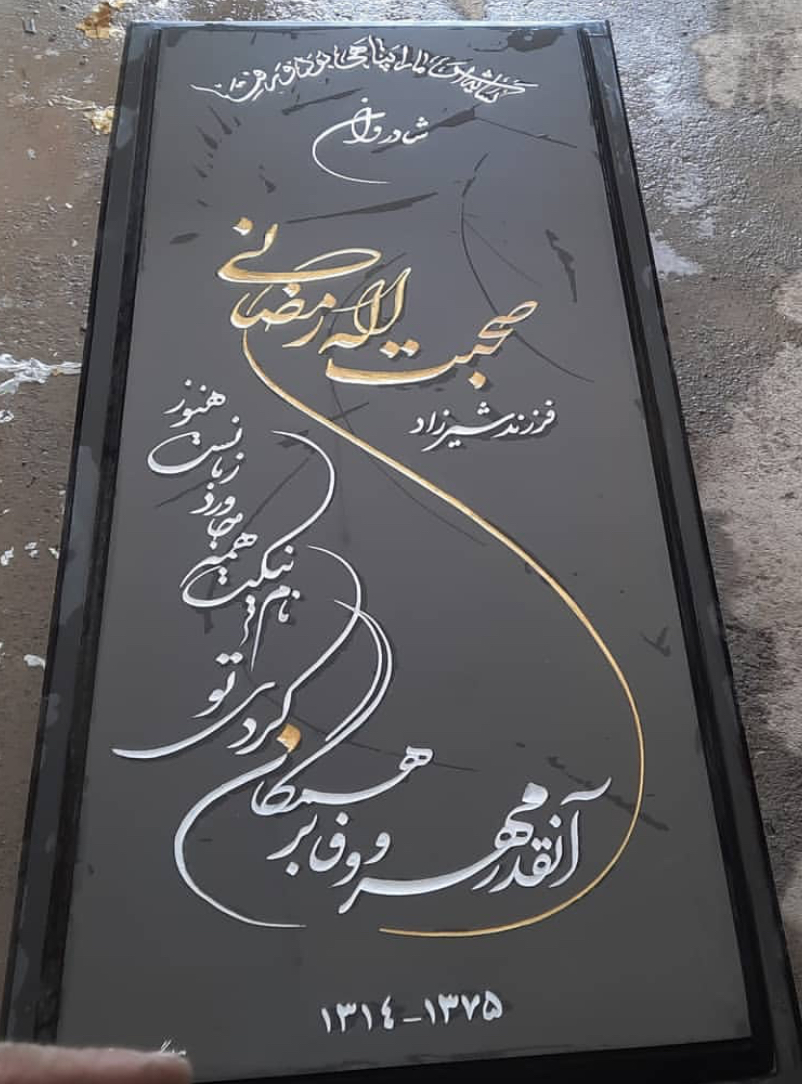 شادروان
صحبت اله رمضانی
فرزند شیرزاد
آنقدر مهر و وفا بر همگان کردی تو
نام نیکت همه جا ورد زبانست هنوز
۱۳۱۴-۱۳۷۵